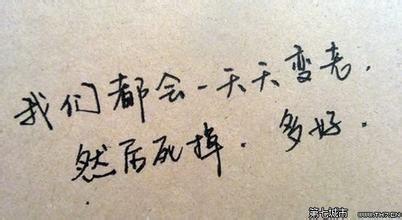 我们都会一天天变老.
然后死掉. 多好.
第七城市